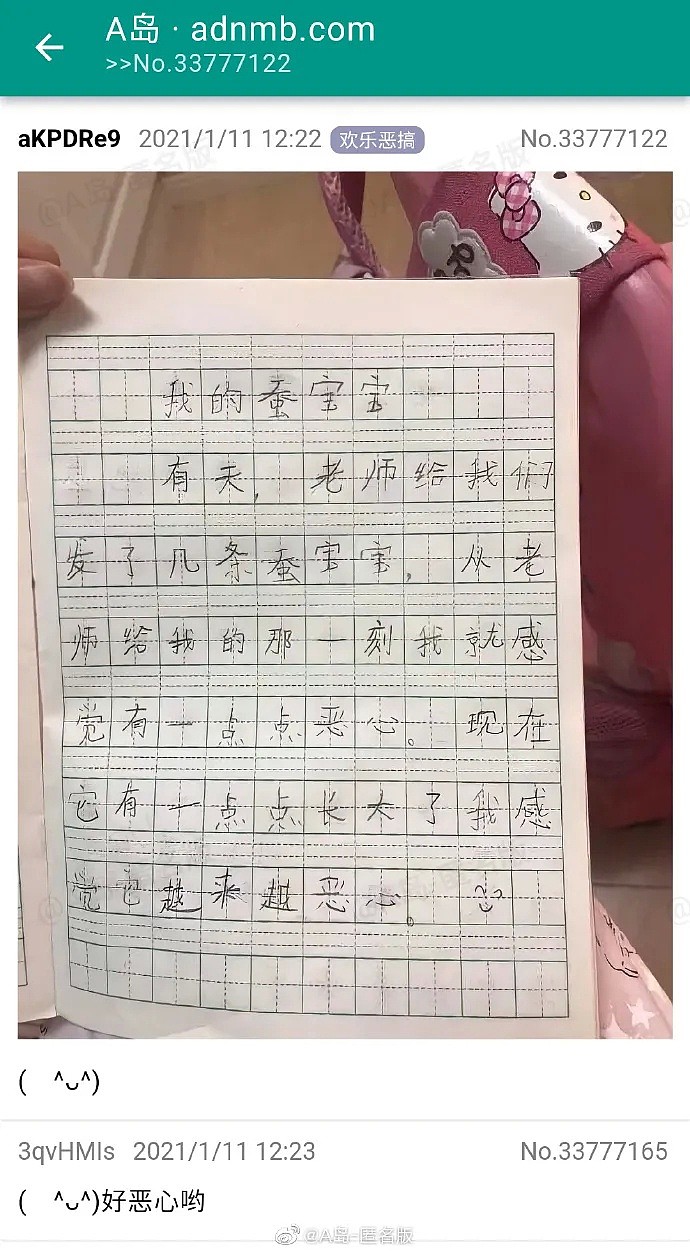 A岛 · adnmb.com
>>No.33777122
aKPDRe9 2021/1/11 12:22 欢乐恶搞 No.33777122
我的蚕宝宝
有天，老师给我们
发了几条蚕宝宝，从老
师给我的那一刻我就感
觉有一点点恶心。现在
它有一点点长大了我感
觉它越来越恶心。
( ^ᴗ^)
3qvHMIs 2021/1/11 12:23 No.33777165
( ^ᴗ^)好恶心哟
@A岛-匿名版